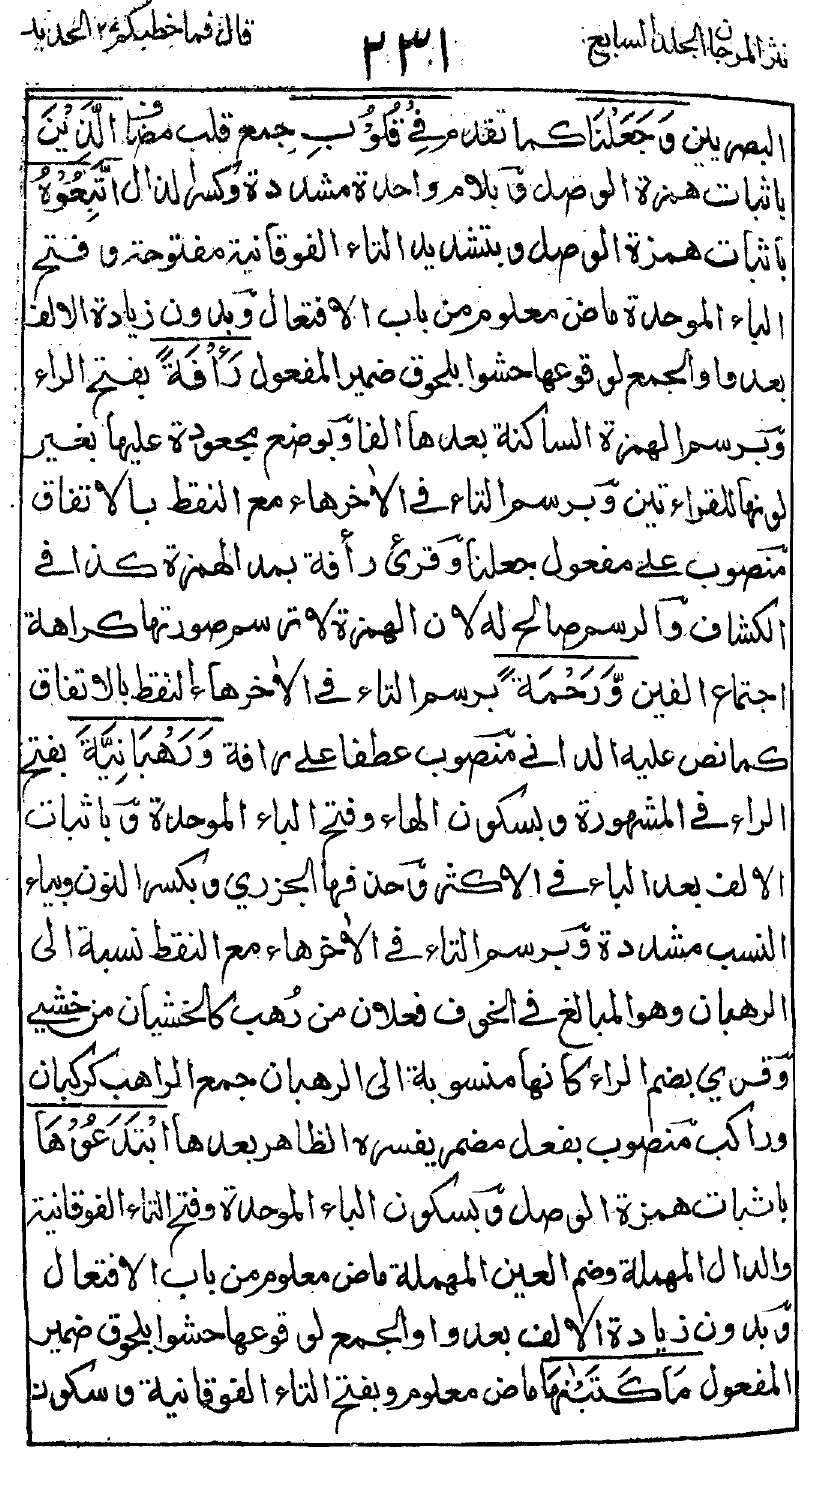 نثر المرجان المجلد السابع
٢٣١
قال فما خطبكم ٢٧ الحديد
البصريين وَجَعَلْنَا كما تقدم فِيْ قُلُوْبِ جمع قلب مضاف الَّذِيْنَ
باثبات همزة الوصل وبلام واحدة مشددة وكسر الذال اتَّبَعُوْهُ
باثبات همزة الوصل وبتشديد التاء الفوقانية مفتوحة وفتح
الباء الموحدة ماض معلوم من باب الافتعال وبدون زيادة الالف
بعد واو الجمع لوقوعها حشوا بلحوق ضمير المفعول رَأْفَةً بفتح الراء
وبرسم الهمزة الساكنة بعدها الفا وبوضع مجعودة عليها بغير
لونها للقراءتين وبرسم التاء في الآخر هاء مع النقط بالاتفاق
منصوب على مفعول جعلنا وقرئ رأفة بمد الهمزة كذا في
الكشاف والرسم صالح له لان الهمزة لا ترسم صورتها كراهة
اجتماع الفين وَّرَحْمَةً برسم التاء في الآخر هاء النقط بالاتفاق
كما نص عليه الداني منصوب عطفا على رافة وَرَهْبَانِيَّةَ بفتح
الراء في المشهورة وبسكون الهاء وفتح الباء الموحدة وباثبات
الالف بعد الباء في الاكثر وحذفها الجزري وبكسر النون وبياء
النسب مشددة وبرسم التاء في الآخر هاء مع النقط نسبة الى
الرهبان وهو المبالغ في الخوف فعلان من رهب كالخشيان من خشي
وقري بضم الراء كانها منسوبة الى الرهبان جمع الراهب كركبان
وراكب منصوب بفعل مضمر يفسره الظاهر بعدها ابْتَدَعُوْهَا
باثبات همزة الوصل وبسكون الباء الموحدة وفتح التاء الفوقانية
والدال المهملة وضم العين المهملة ماض معلوم من باب الافتعال
وبدون زيادة الالف بعد واو الجمع لوقوعها حشوا بلحوق ضمير
المفعول مَا كَتَبْنٰهَا ماض معلوم وبفتح التاء الفوقانية وسكون